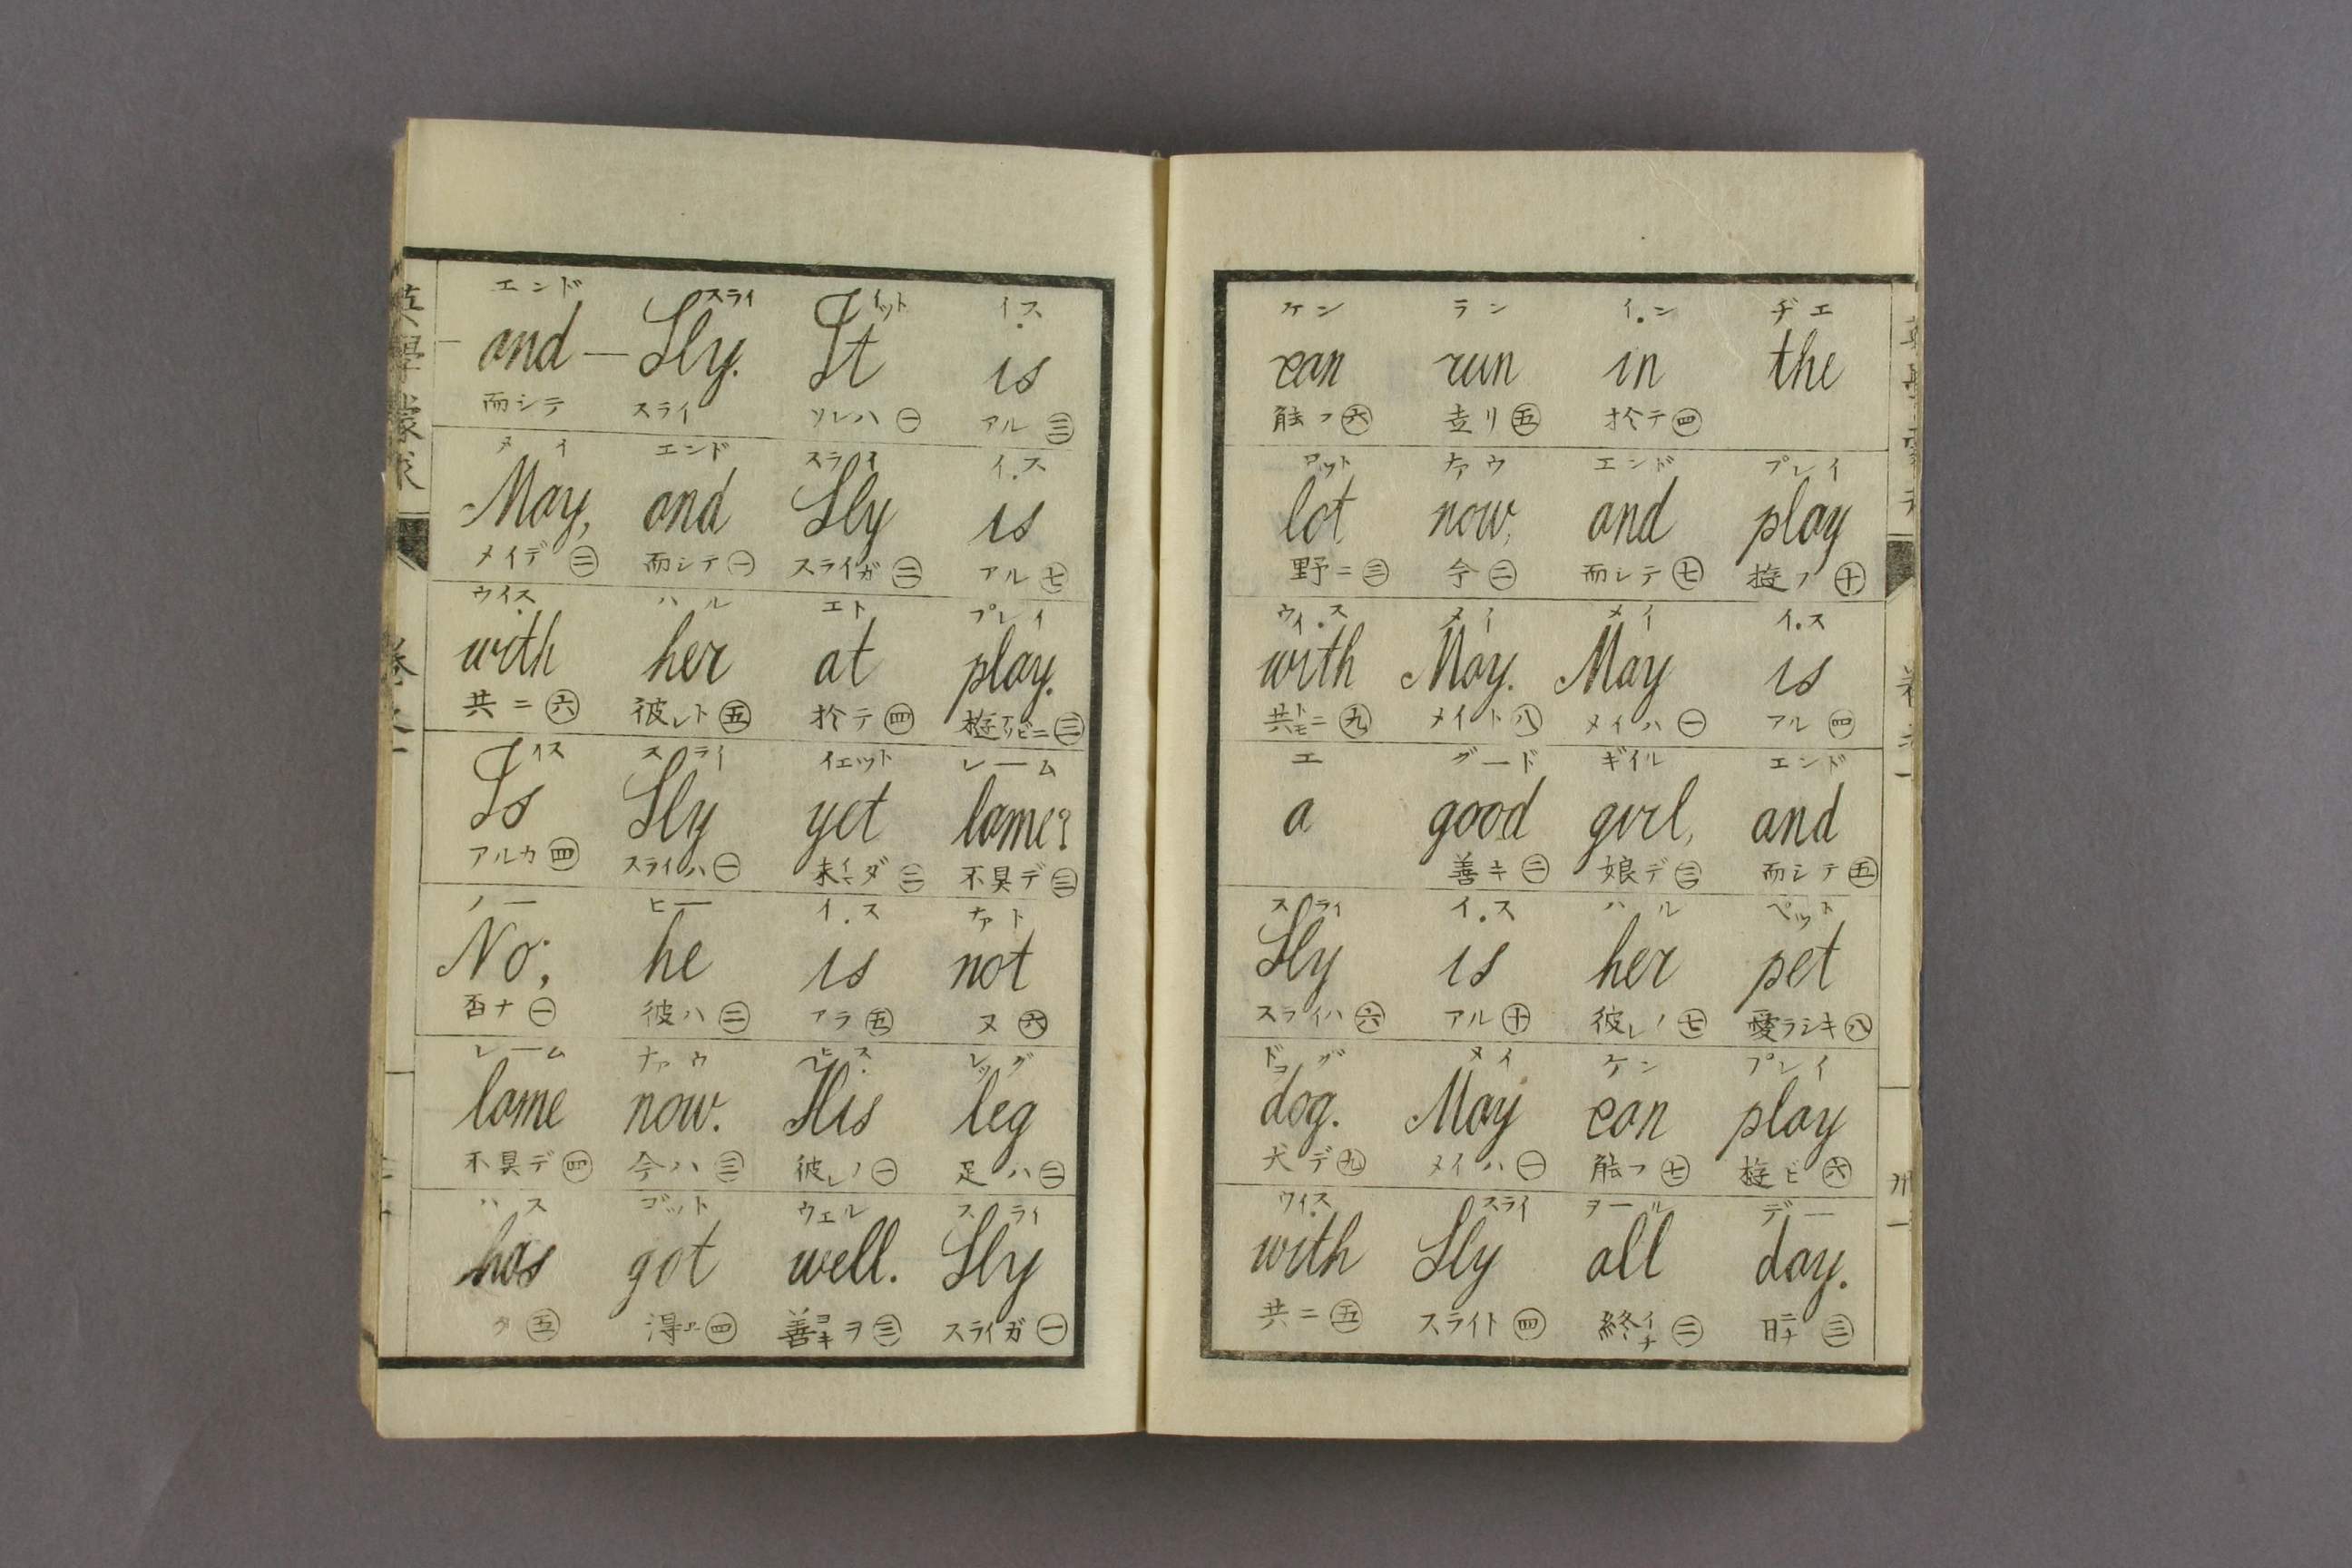 エンド スライ イット イス
and — Sly. It is
而シテ スライ ソレハ㊀ アル㊂
メイ エンド スライ イス
May, and Sly is
メイデ㊁ 而シテ㊀ スライガ㊁ アル㊆
ウイス ハル エト プレイ
with her at play.
共ニ㊅ 彼レト㊄ 於テ㊃ 遊アソビニ㊂
イス スライ イエット レーム
Is Sly yet lame?
アルカ㊃ スライハ㊀ 未イマダ㊁ 不具デ㊂
ノー ヒー イス ナアト
No; he is not
否ナ㊀ 彼ハ㊁ アラ㊄ ヌ㊅
レーム ナアウ ヒス レッグ
lame now. His leg
不具デ㊃ 今ハ㊂ 彼レノ㊀ 足ハ㊁
ハス ゴット ウエル スライ
has got well. Sly
タ㊄ 得エ㊃ 善ヨキヲ㊂ スライガ㊀
ケン ラン イン ヂエ
can run in the
能フ㊅ 走リ㊄ 於テ㊃
ロット ナアウ エンド プレイ
lot now, and play
野ニ㊂ 今㊁ 而シテ㊆ 遊フ㊉
ウイス メイ メイ イス
with May. May is
共トモニ㊈ メイト㊇ メイハ㊀ アル㊃
エ グード ギイル エンド
a good girl, and
善キ㊁ 娘デ㊂ 而シテ㊄
スライ イス ハル ペット
Sly is her pet
スライハ㊅ アル㊉ 彼レノ㊆ 愛ラシキ㊇
ドッグ メイ ケン プレイ
dog. May can play
犬デ㊈ メイハ㊀ 能フ㊆ 遊ビ㊅
ウイス スライ ヲール デー
with Sly all day.
共ニ㊄ スライト㊃ 終イチ㊁ 日ニチ㊂